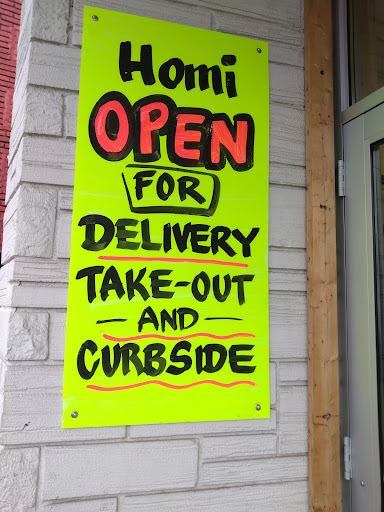 Homi
OPEN
FOR
DELIVERY
TAKE-OUT
— AND —
CURBSIDE